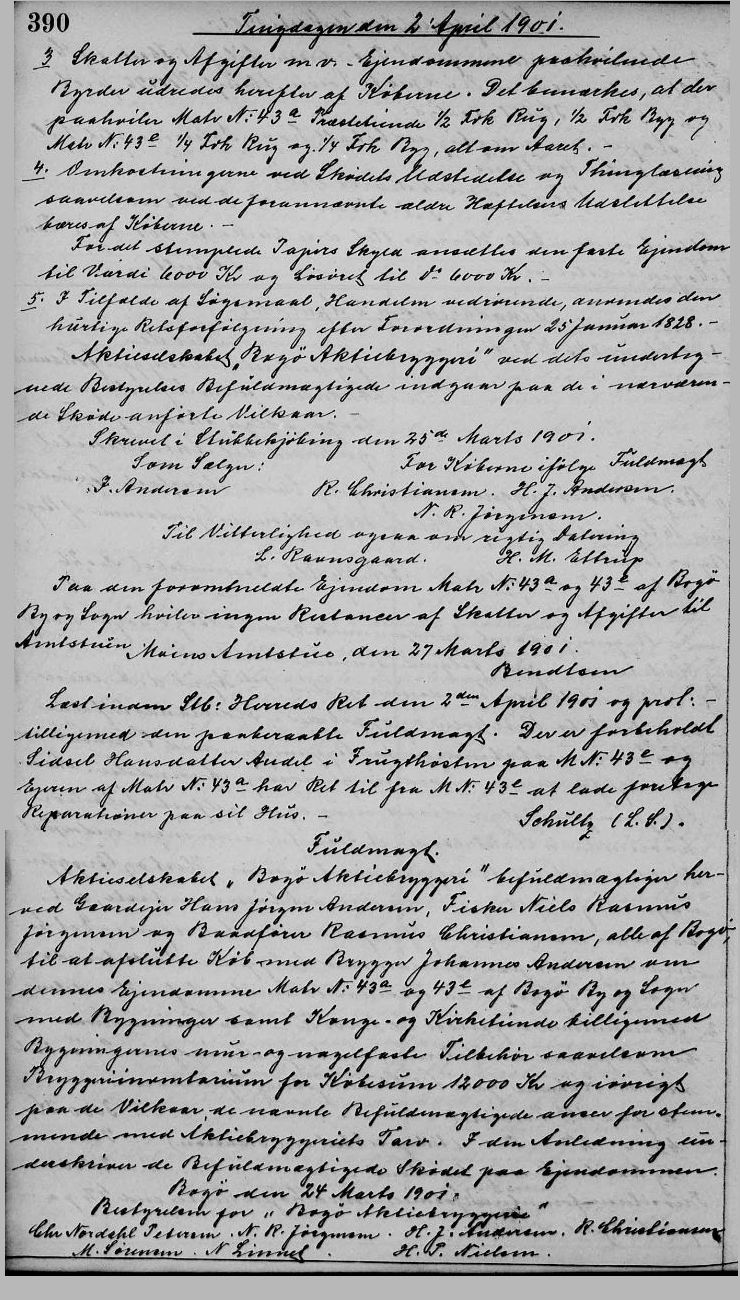 390 Tingdagen den 2' April 1901.
3 Skatter og Afgifter m v. - Ejendommene paahvilende
Byrder udredes herefter af Köberne. Det bemærkes, at der
paahviler Matr N: 43a Præstetiende 1/2 Fdk Rug, 1/2 Fdk Byg og
Matr N: 43e 1/4 Fdk Rug og 1/4 Fdk Byg, alt om Aaret. -
4. Omkostningerne ved Sködets Udstedelse og Thinglæsning
saavelsom ved de forannævnte ældre Hæftelsers Udslettelse
bæres af Köberne. -
For det stemplede Papirs Skyld ansættes den faste Ejendom
til Værdi 6000 Kr og Lösöret til do 6000 Kr. -
5. I Tilfælde af Sögsmaal, Handelen vedrörende, anvendes den
hurtige Retsforfölgning efter Forordningen 25 Januar 1828. -
Aktieselskabet „Bogö Aktiebryggeri" ved dets underteg-
nede Bestyrelses Befuldmægtigede indgaar paa de i nærværen-
de Sköde anförte Vilkaar. -
Skrevet i Stubbekjöbing den 25de Marts 1901.
Som Sælger: For Köberne ifölge Fuldmagt
J. Andersen R. Christiansen. H. J. Andersen.
N. R. Jörgensen.
Til Vitterlighed ogsaa om rigtig Datering
L. Ravnsgaard. H. M. Ettrup
Paa den foromtmeldte Ejendom Matr N: 43a og 43e af Bogö
By og Sogn hviler ingen Restancer af Skatter og Afgifter til
Amtstuen. Möens Amtstue, den 27 Marts 1901.
Bendtsen
Læst inden Stb: Herreds Ret den 2den April 1901 og prot: -
tilligemed den paaberaabte Fuldmagt. Der er forbeholdt
Sidsel Hansdatter Andel i Frugthösten paa M N: 43e og
Ejeren af Matr N: 43a har Ret til fra M N: 43e at lade foretage
Reparationer paa sit Hus. -
Schultz (L. S.).
Fuldmagt.
Aktieselskabet „Bogö Aktiebryggeri" befuldmægtiger her-
ved Gaardejer Hans Jörgen Andersen, Fisker Niels Rasmus
Jörgensen og Baadförer Rasmus Christiansen, alle af Bogö,
til at afslutte Köb med Brygger Johannes Andersen om
dennes Ejendomme Matr N: 43a og 43e af Bogö By og Sogn
med Bygninger samt Konge- og Kirketiende tilligemed
Bygningernes mur- og nagelfaste Tilbehör saavelsom
Bryggeriinventarium for Köbesum 12000 Kr og iövrigt
paa de Vilkaar, de nævnte Befuldmægtigede anser for stem-
mende med Aktiebryggeriets Tarv. I den Anledning un-
derskriver de Befuldmægtigede Sködet paa Ejendommen.
Bogö den 24 Marts 1901.
Bestyrelsen for „Bogö Aktiebryggeri"
Chr Nordahl Petersen. N. R. Jörgensen. H. J. Andersen. R. Christiansen
M. Sörensen. N Linnet. H. P. Nielsen.